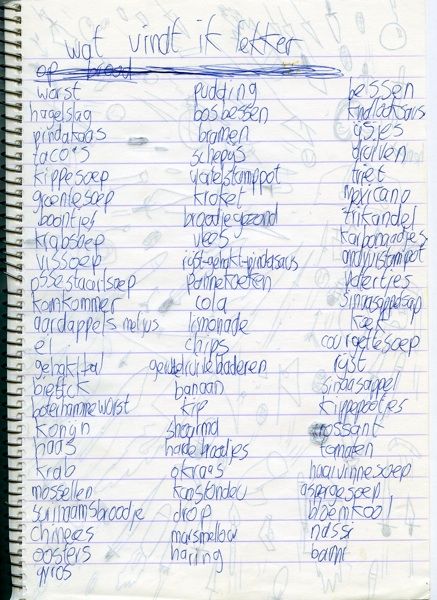 wat vindt ik lekker
op brood
worst
hagelslag
pindakaas
taco's
kippesoep
groentesoep
boontjes
krabsoep
vissoep
ossestaartsoep
komkommer
aardappels met jus
ei
gehaktbal
boterhammeworst
konijn
haas
krab
mosselen
surinaamsbroodje
chinees
oosters
gyros
pudding
bosbessen
bramen
schepijs
wortelstamppot
kroket
broodjegezond
vlees
rijst-gehakt-pindasaus
pannekoeken
cola
limonade
chips
banaan
kip
shoarma
hardebroodjes
kaasfondeu
drop
marsmellow
haring
bessen
knoflooksaus
ijsjes
druiven
friet
mexicano
frikandel
karbonaadjes
andijvistampot
sinaasappelsap
koek
courgettesoep
rijst
sinaasappel
kippepootjes
krossant
tomaten
haaivinnesoep
aspergesoep
bloemkool
nassi
bami